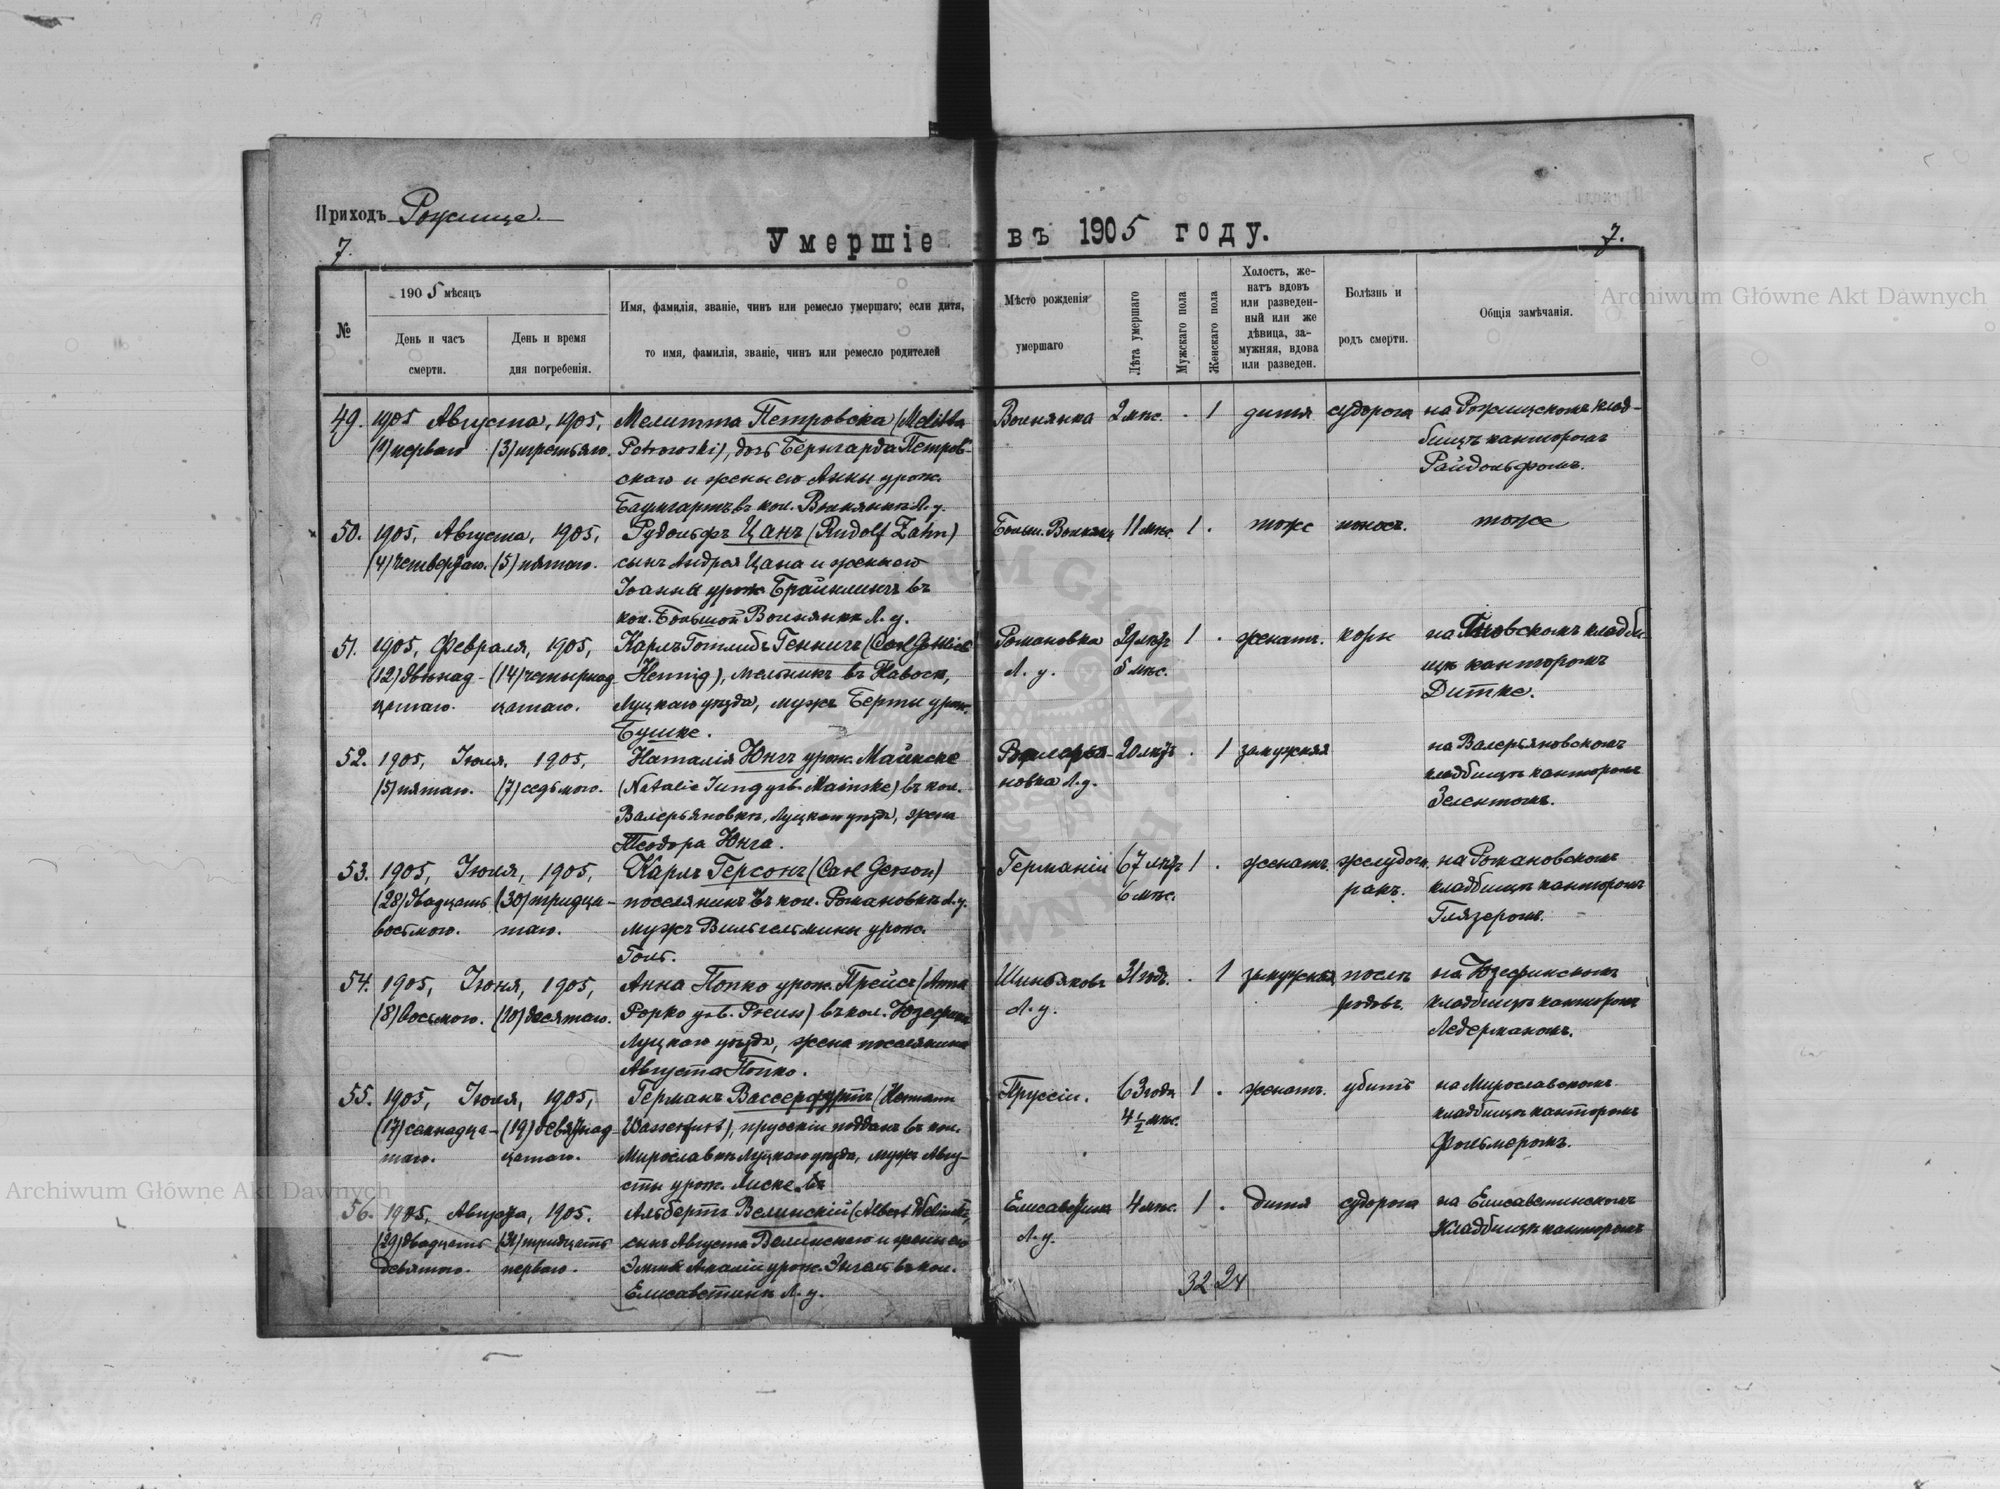 Приходъ Рожище.
7.
Умершіе въ 1905 году.
7.
№
1905 мѣсяцъ
День и часъ смерти.
День и время дня погребенія.
Имя, фамилія, званіе, чинъ или ремесло умершаго; если дитя,
то имя, фамилія, званіе, чинъ или ремесло родителей
Мѣсто рожденія
умершаго
Лѣта умершаго
Мужскаго пола
Женскаго пола
Холостъ, же-
натъ вдовъ
или разведен-
ный или же
дѣвица, за-
мужняя, вдова
или разведен.
Болѣзнь и
родъ смерти.
Общія замѣчанія.
49. 1905 Августа, 1905, Мелитта Петровска (Melitta Волнянка 2 мѣс. . 1 дитя судорога на Рожищскомъ клад-
(1) перваго (3) третьяго. Petrowski), дочь Бернгарда Петров- бищѣ канторомъ
скаго и жены его Анны урож. Райдольфомъ.
Баумгартъ въ кол. Волнянкѣ Л. у.
50. 1905, Августа, 1905, Рудольфъ Цанъ (Rudolf Zahn) Больш. Волнянк 11 мѣс. 1 . тоже поносъ. тоже
(4) четвертаго. (5) пятаго. сынъ Андрея Цана и жены его
Іоанны урож. Брайклингъ въ
кол. Большой Волнянкѣ Л. у.
51. 1905, Февраля, 1905, Карлъ Готлибъ Геннигъ (Carl Gottlieb Романовка 29 лѣтъ 1 . женатъ. корь на кладби-
(12) двѣнад- (14) четырнад- Hennig), мельникъ въ Навозѣ, Л. у. 5 мѣс. щѣ канторомъ
цатаго. цатаго. Луцкаго уѣзда, мужъ Берты урож. Дитке.
Бушке.
52. 1905, Іюля, 1905, Наталія Юнгъ урож. Майнске Валерья- 20 лѣтъ . 1 замужняя на Валерьяновскомъ
(5) пятаго. (7) седьмого. (Natalie Jung geb. Mainske) въ кол. новка Л. у. кладбищѣ канторомъ
Валерьяновкѣ, Луцкаго уѣзда, жена Зелентомъ.
Теодора Юнга.
53. 1905, Іюля, 1905, Карлъ Герсонъ (Carl Gerson) Германіи 67 лѣтъ 1 . женатъ. желудочн. на Романовскомъ
(28) двадцать (30) тридца- поселянинъ въ кол. Романовкѣ Л. у. 6 мѣс. ракъ. кладбищѣ канторомъ
восьмого. таго. мужъ Вильгельмины урож. Глязеромъ.
Гольт.
54. 1905, Іюня, 1905, Анна Попко урож. Прейсъ (Anna 31 годъ. . 1 замужняя послѣ на Юзефинскомъ
(8) восьмого. (10) десятаго. Popko geb. Preuss) въ кол. Юзефинѣ Л. у. родовъ. кладбищѣ канторомъ
Луцкаго уѣзда, жена поселянина Ледерманомъ.
Августа Попко.
55. 1905, Іюля, 1905, Германъ Вассерфуртъ (Hermann Пруссіи. 63 года 1 . женатъ. убитъ на Мирославскомъ
(17) семнадца- (19) девятнад- Wasserfurt), прусскій поддан. въ кол. 4 1/2 мѣс. кладбищѣ канторомъ
таго. цатаго. Мирославкѣ Луцкаго уѣзда, мужъ Авгу- Фольмеромъ.
сты урож. Лиске.
56. 1905, Августа, 1905. Альбертъ Велинскій (Albert Welinski), Елисаветина 4 мѣс. 1 . дитя судорога на Елисаветинскомъ
(29) двадцать (31) тридцать сынъ Августа Велинскаго и жены его Л. у. кладбищѣ канторомъ
девятого. перваго. Амаліи урож. Энгель въ кол.
Елисаветинѣ Л. у.
32 24
Archiwum Główne Akt Dawnych
Archiwum Główne Akt Dawnych